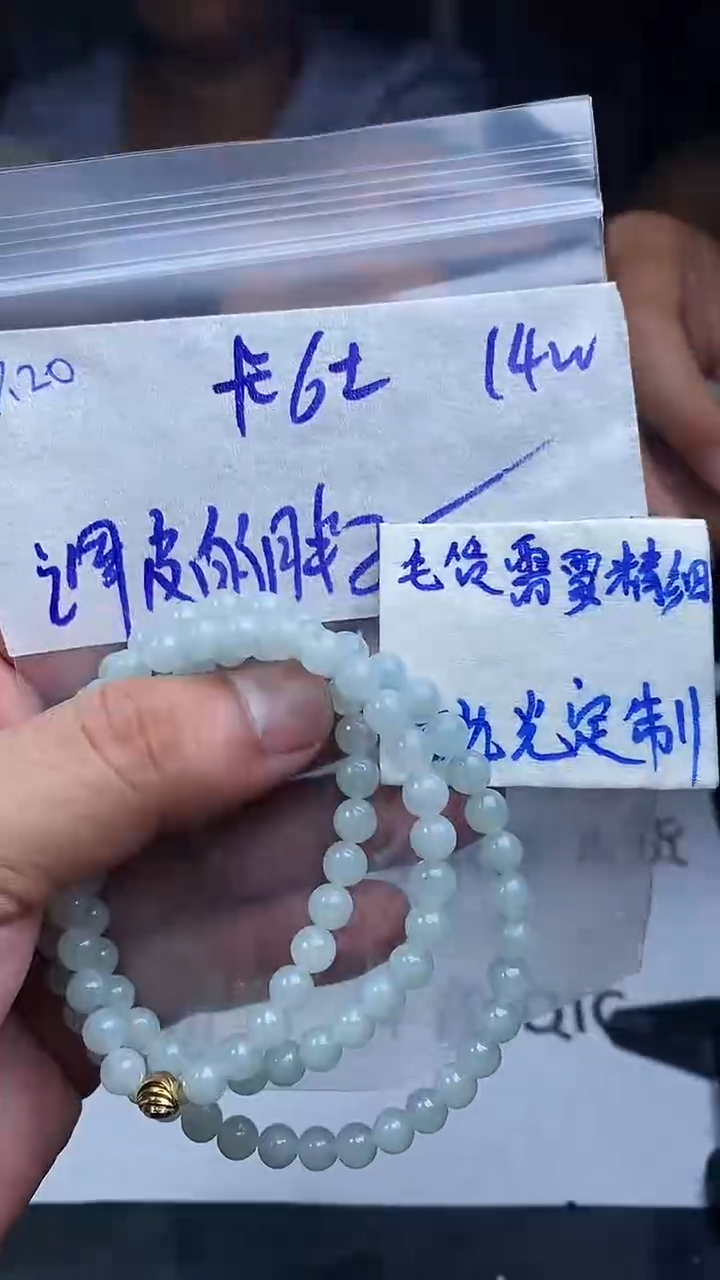 .20 卡6土 14w
调皮的胖
毛货需要精细
抛光定制
货
QIC